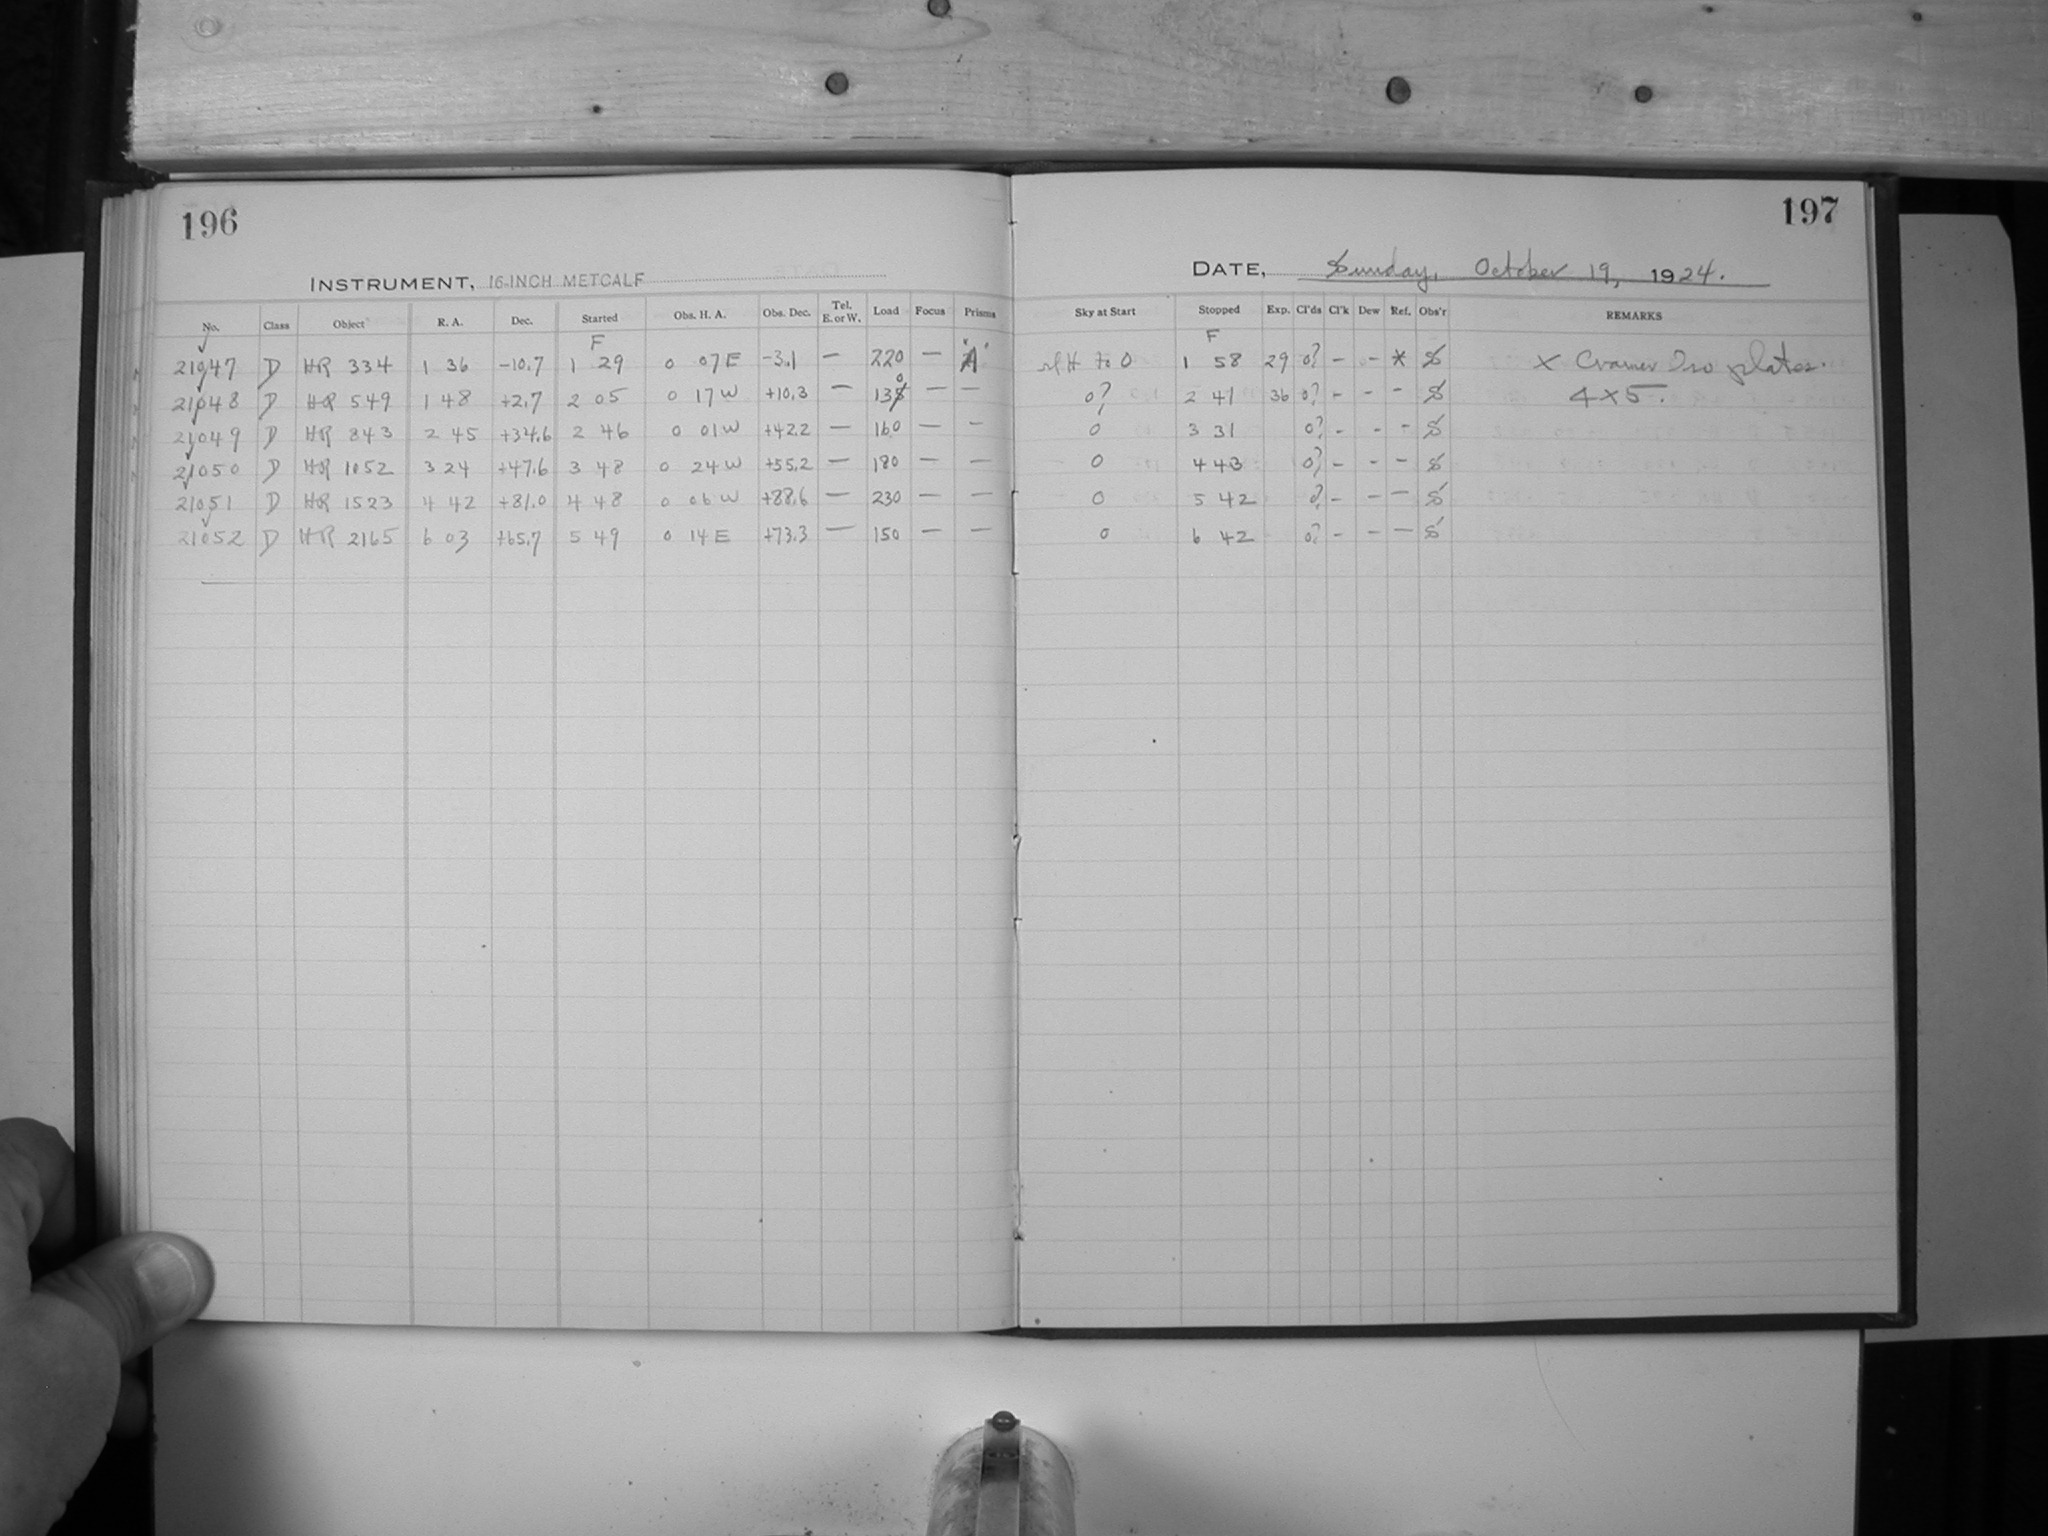 196
INSTRUMENT, 16-INCH METCALF
No. Class Object R. A. Dec. Started Obs. H. A. Obs. Dec. Tel. E. or W. Load Focus Prisms
F
21047 D HR 334 1 36 -10.7 1 29 0 07 E -3.1 — 220 — "A"
21048 D HR 549 1 48 +2.7 2 05 0 17 W +10.3 — 130 — —
21049 D HR 843 2 45 +34.6 2 46 0 01 W +42.2 — 160 — —
21050 D HR 1052 3 24 +47.6 3 48 0 24 W +55.2 — 180 — —
21051 D HR 1523 4 42 +81.0 4 48 0 06 W +88.6 — 230 — —
21052 D HR 2165 6 03 +65.7 5 49 0 14 E +73.3 — 150 — —
197
DATE, Sunday, October 19, 1924.
Sky at Start Stopped Exp. Cl'ds Cl'k Dew Ref. Obs'r REMARKS
F
H to 0 1 58 29 0? - - * S x Cramer Iso plates.
0? 2 41 36 0? - - - S 4x5.
0 3 31 0? - - - S
0 4 43 0? - - - S
0 5 42 0? - - - S
0 6 42 0? - - - S